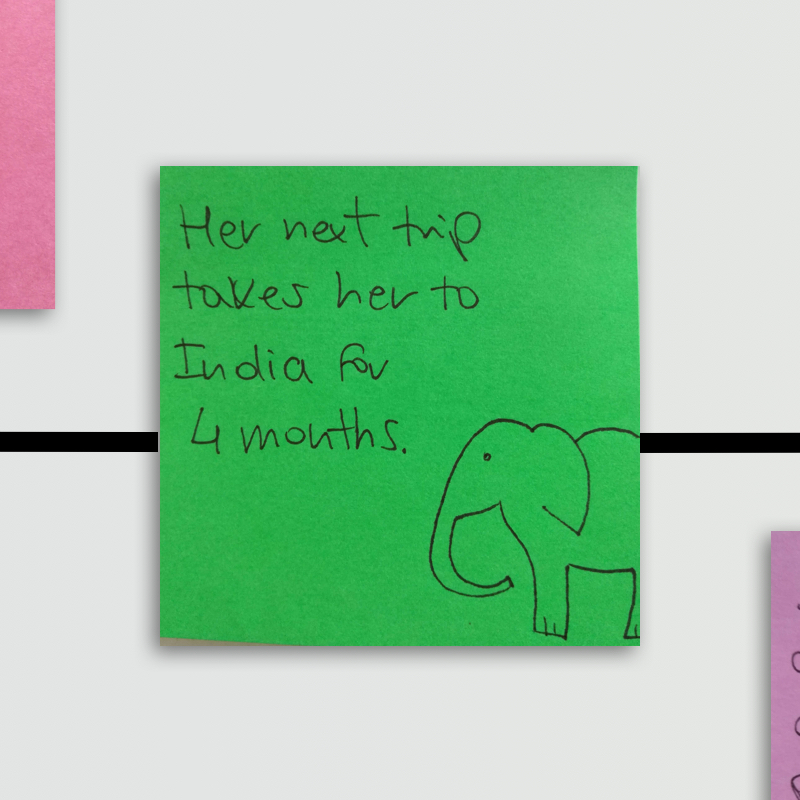 Her next trip
takes her to
India for
4 months.